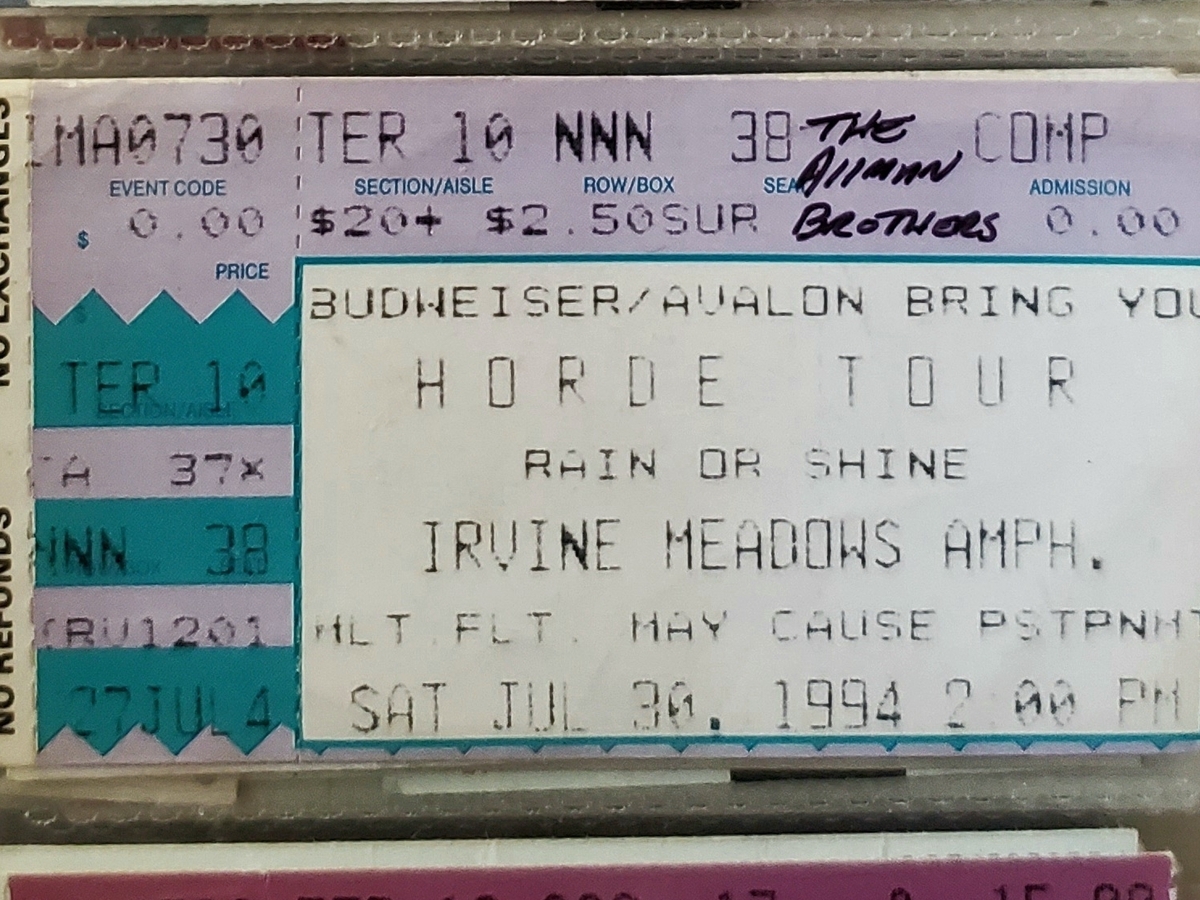 NO REFUNDS NO EXCHANGES
MA0730
EVENT CODE
$ 0.00
PRICE
TER 10
SECTION/AISLE
CA 37X
NNN 38
BOX
RV1201
27JUL4
TER 10 NNN 38 COMP
SECTION/AISLE ROW/BOX SEA ADMISSION
$20+ $2.50SUR 0.00
THE
Allman
BROTHERS
BUDWEISER/AVALON BRING YOU
HORDE TOUR
RAIN OR SHINE
IRVINE MEADOWS AMPH.
MLT.FLT. MAY CAUSE PSTPNMT
SAT JUL 30, 1994 2:00 PM